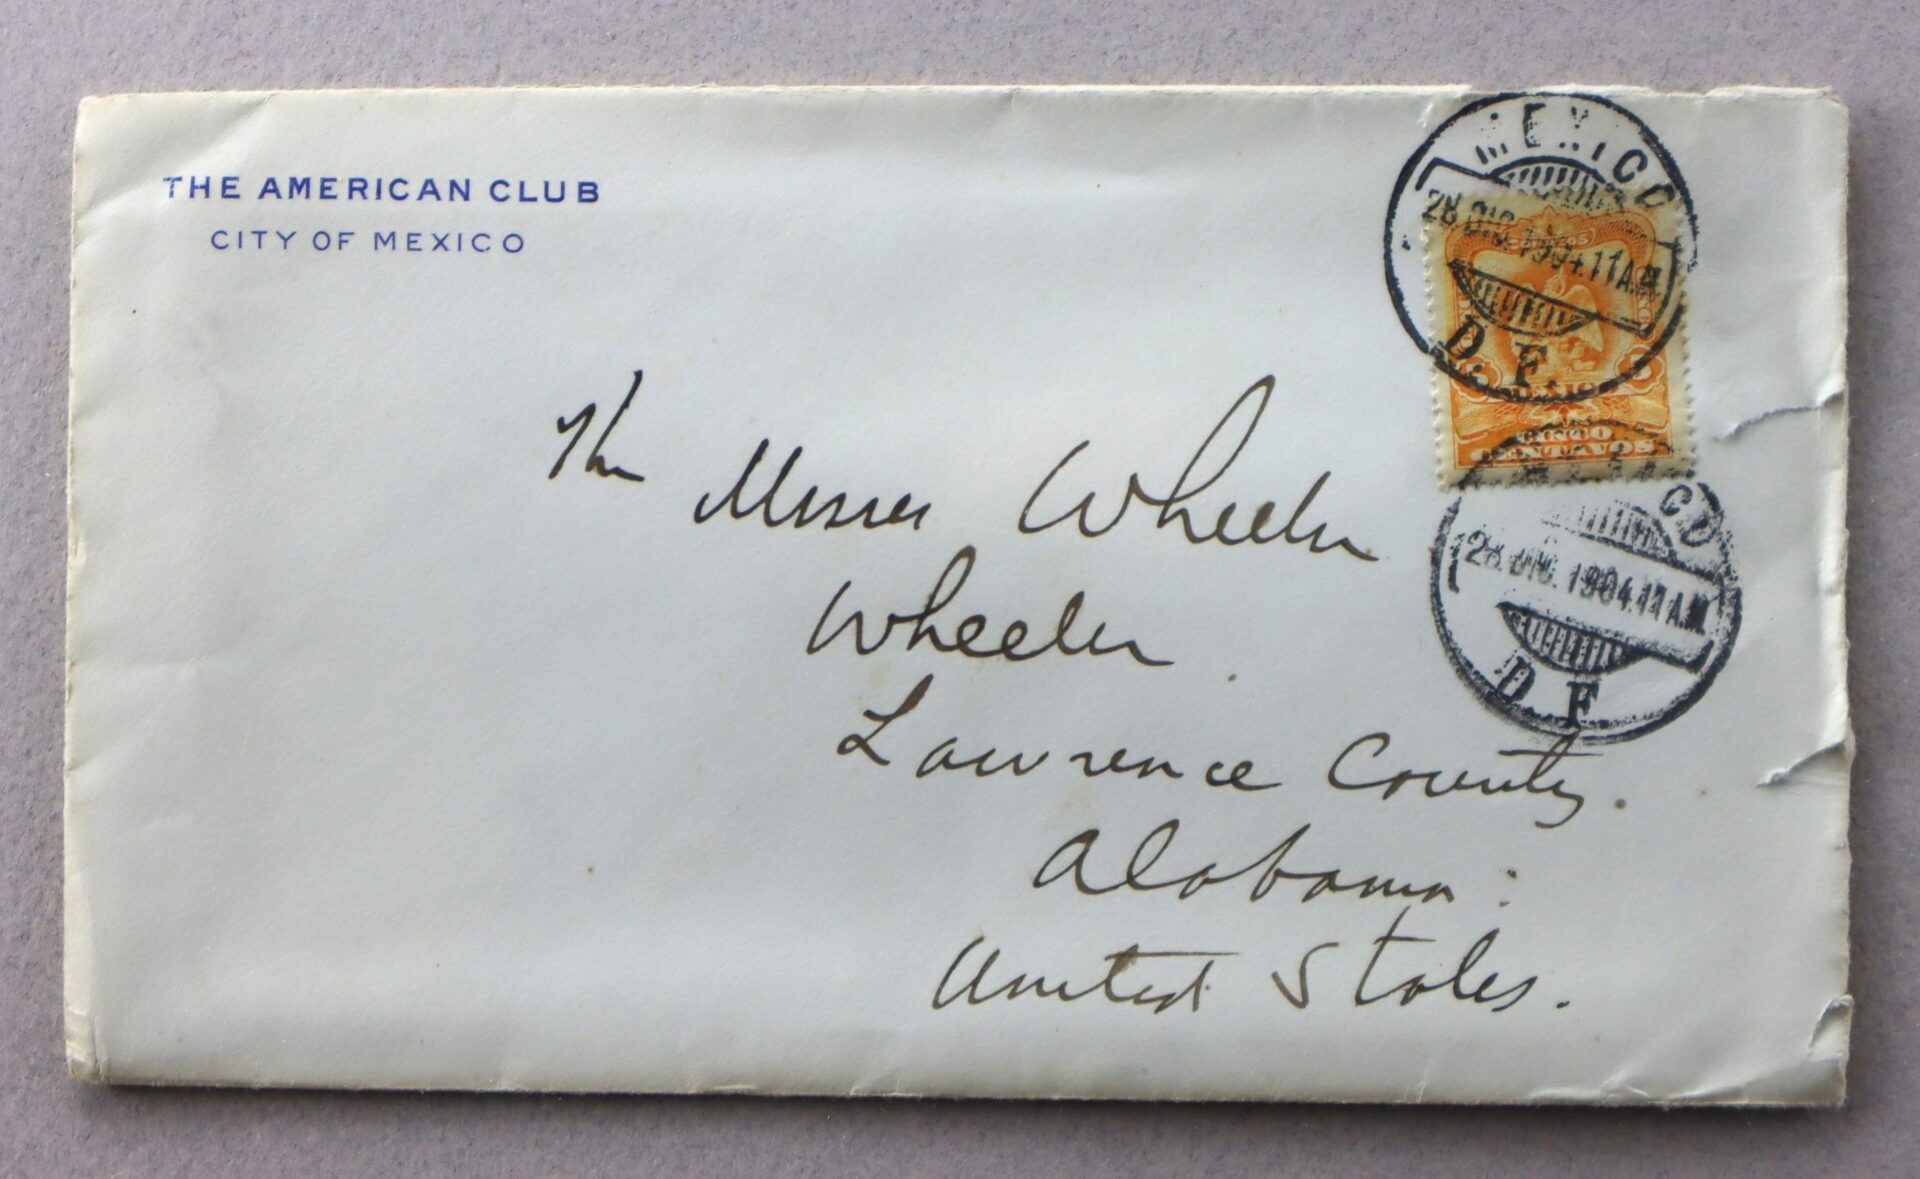 THE AMERICAN CLUB
CITY OF MEXICO
MEXICO
28.DIC.1904.11A.M.
D. F.
5 5
CINCO
CENTAVOS
28.DIC.1904.11A.M.
D. F
The Misses Wheeler
Wheeler
Lawrence County.
Alabama.
United States.